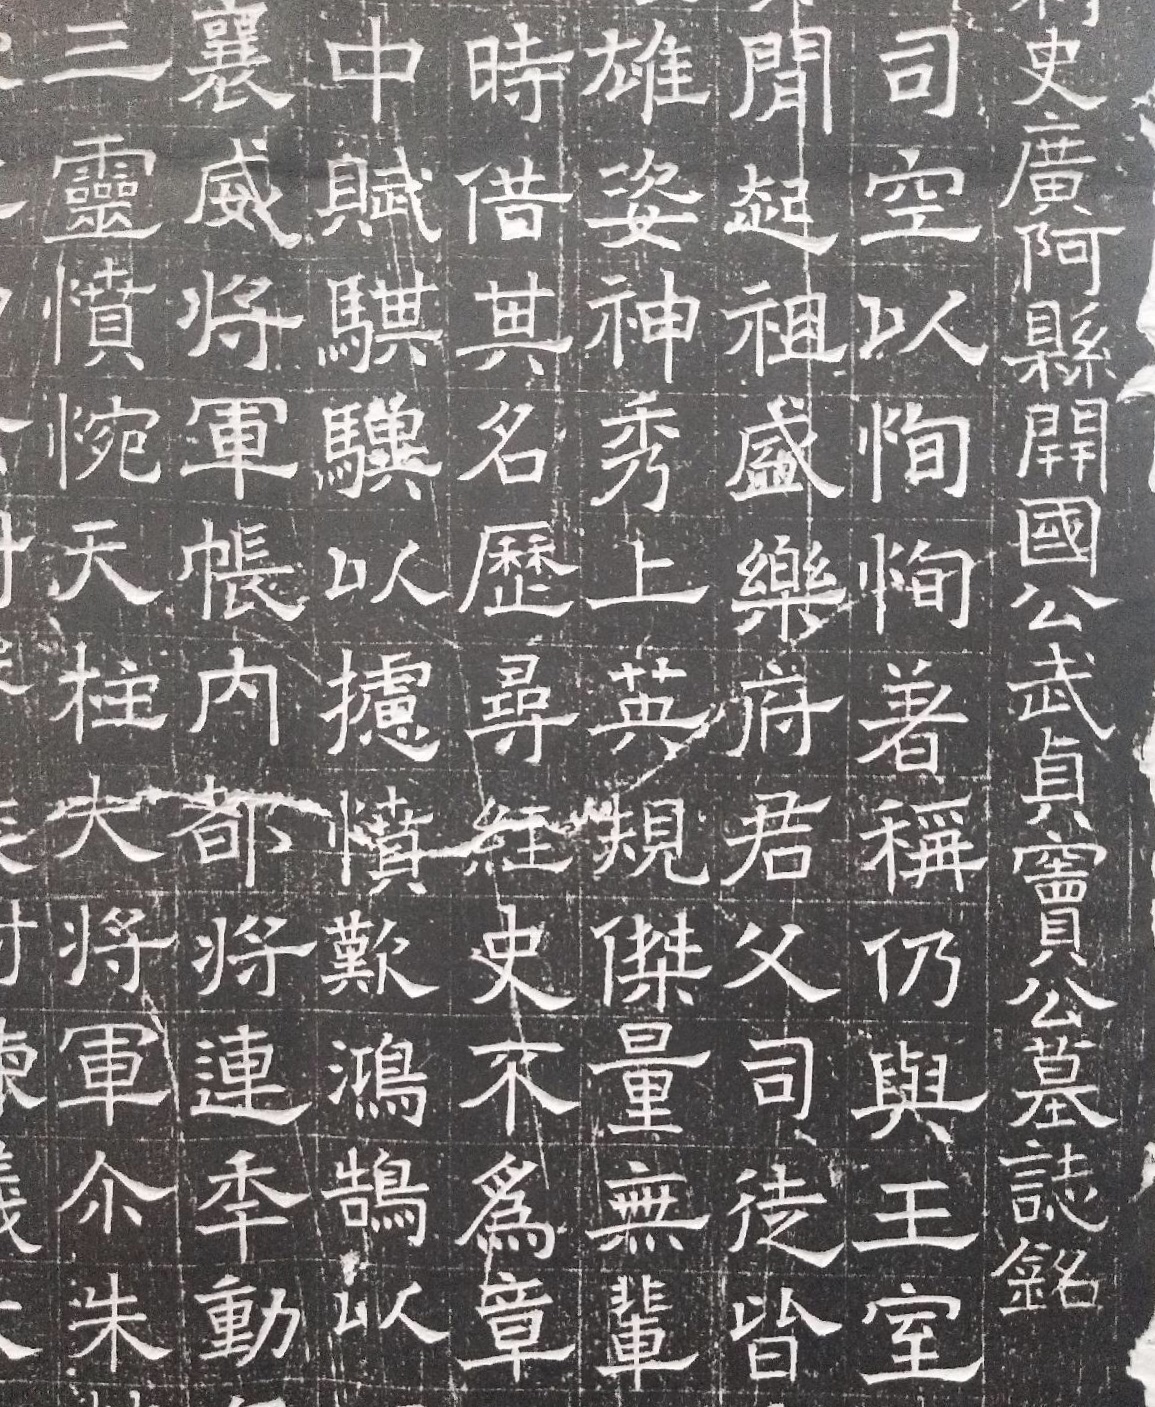 史廣阿縣開國公武貞竇公墓誌銘
司空以恂恂著稱仍與王室
閒起祖盛樂府君父司徒皆
雄姿神秀上英規傑量無輩
時借其名歷尋經史不爲章
中賦騏驥以攄憤歎鴻鵠以
襄威將軍帳内都將連季動
三靈憤惋天柱大將軍尒朱